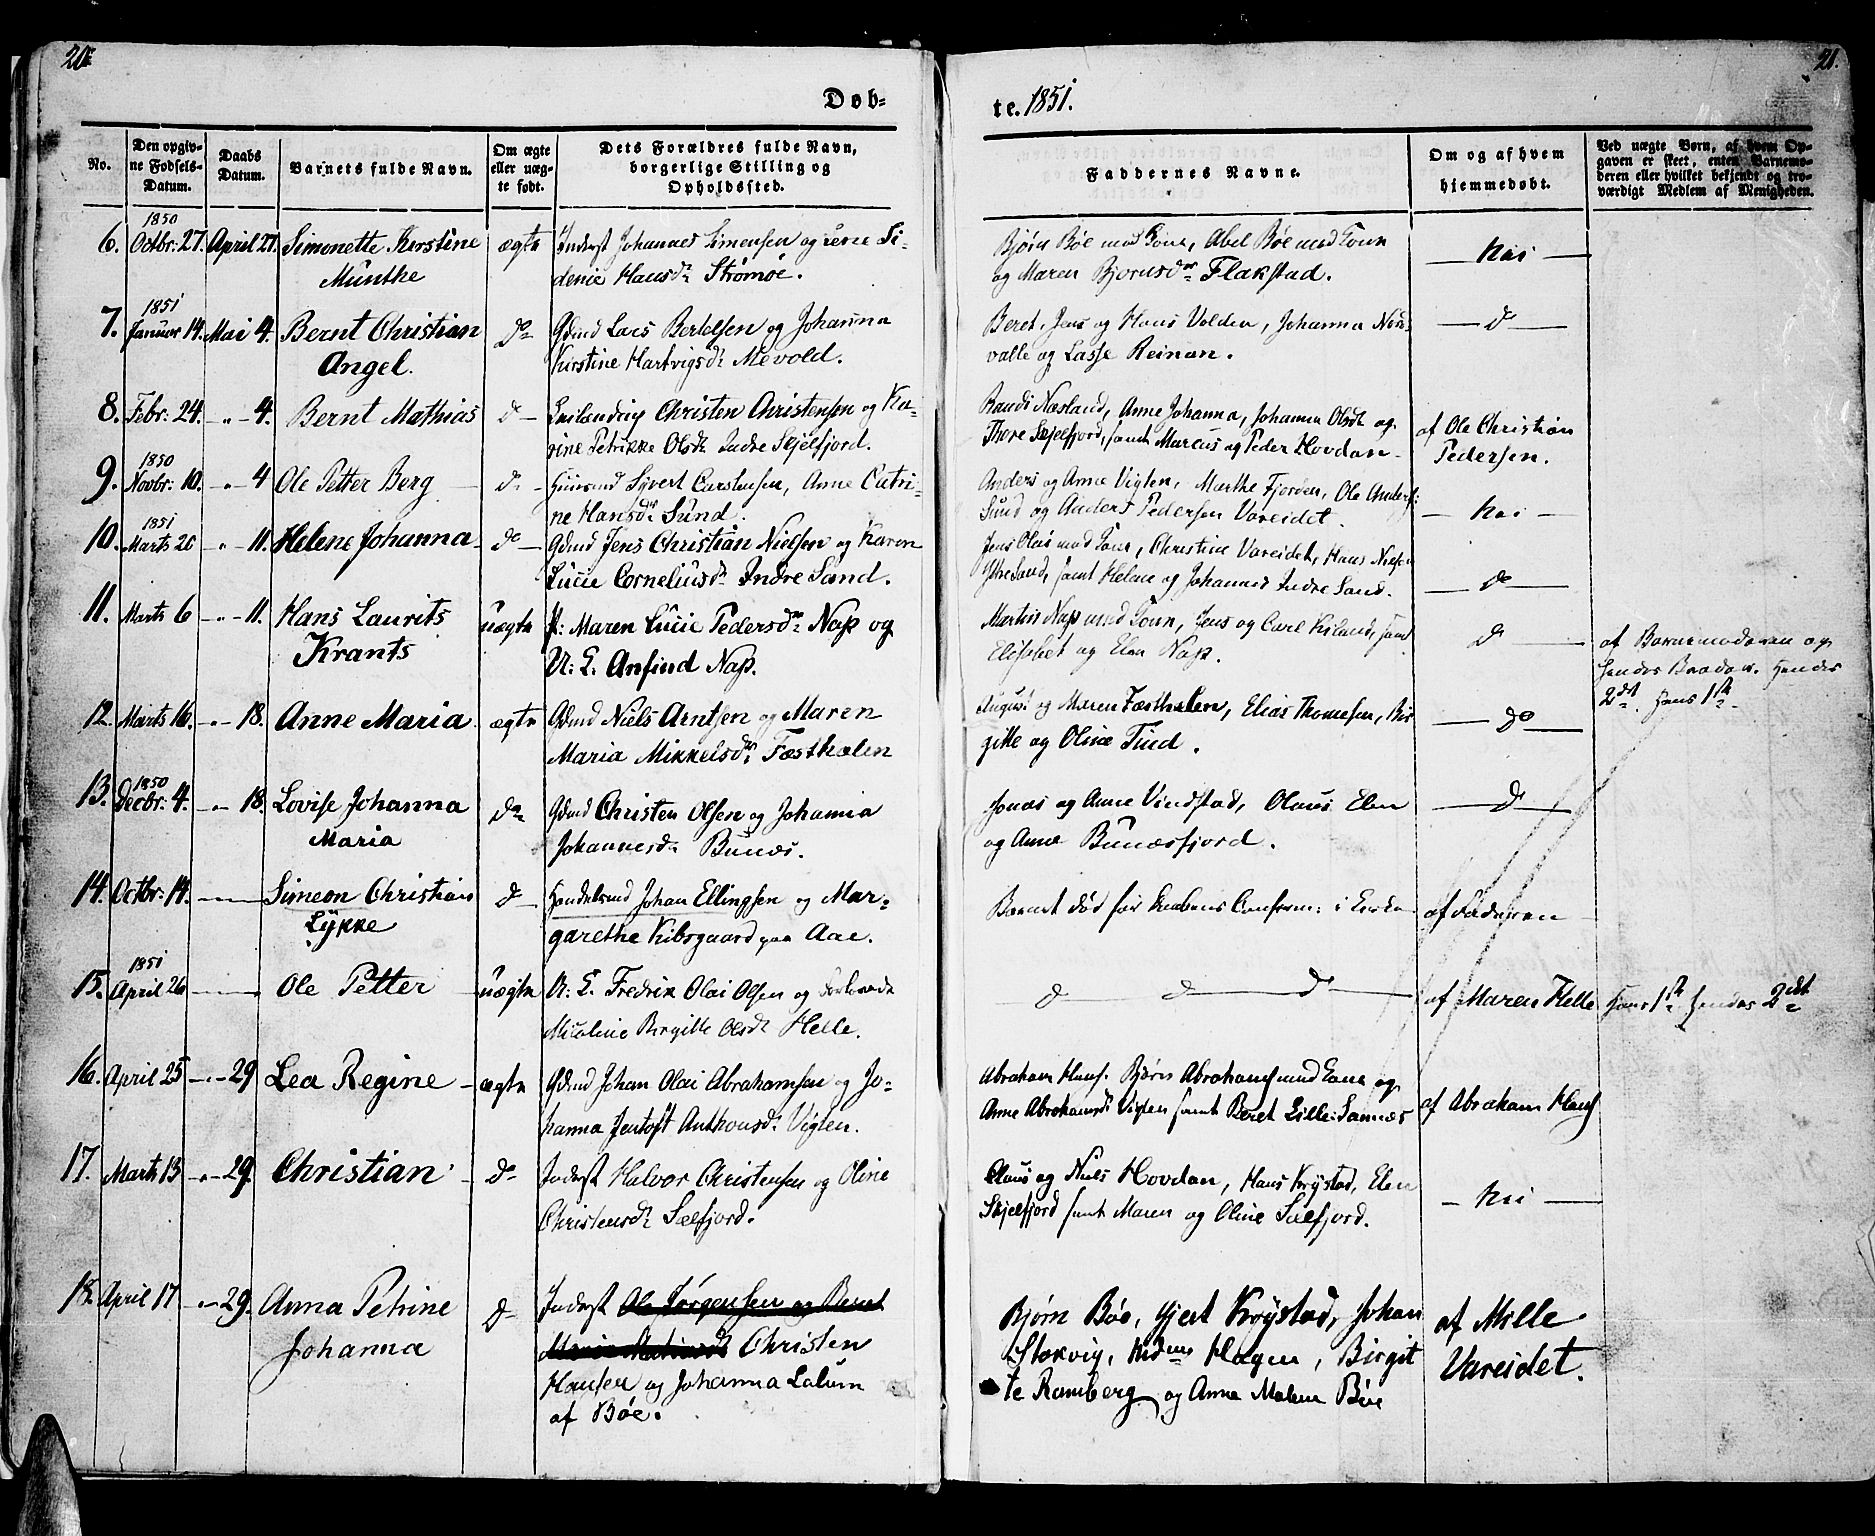 20.
21.
Døb-
te. 1851.
No.
Den opgiv-
ne Fødsels-
Datum.
Daabs
Datum.
Barnets fulde Navn.
Om ægte
eller uæg-
te født.
Dets Forældres fulde Navn,
borgerlige Stilling og
Opholdssted.
Faddernes Navne.
Om og af hvem
hjemmedøbt.
Ved uægte Børn, af hvem Op-
gaven er skeet, enten Barnemo-
deren eller hvilket bekjendt og tro-
værdigt Medlem af Menigheden.
1850
6. Octbr: 27. April 27. Simonette Kirstine ægte Inderst Johannes Simensen og Si-
Münthe denie Hansdr Strømøe.
Bjørn Bøe med Kone, Abel Bøe med Konen
og Maren Bjornsdr Flakstad.
nei
1851
7. Januar 14. Mai 4. Bernt Christian do Gdmd Lars Bertelsen og Johanna
Angel. Kirstine Hartvigsdr Mevold.
Beret, Jens og Hans Volden, Johanna
valle og Lasse Reinan.
d
8. Febr: 24. " - 4. Bernt Mathias d Christen Christensen og Ka-
rine Petrikke Olsdr Indre Skjelfjord.
Randi Næsland, Anne Johanna, Johanna Olsdr og
Thore Skjelfjord, samt Marcus og Peder Hovdan
af Ole Christian
Pedersen.
1850
9. Novbr: 10. " - 4 Ole Petter Berg d. Huusmd Sivert Carstensen, Anne Catri-
ne Hansdr Sund.
Anders og Anne Vigten, Marthe Fjorden, Ole Anders:
Sund og Anders Pedersen Vareidet.
nei
1851
10. Marts 20 " - 11. Helene Johanna do Gdmd Jens Christian Nielsen og Karen
Lucie Corneliusdr Indre Sand.
Jens Olai med Kone, Christine Vareidet, Hans Nielsen
Ytre Sand, samt Helene og Johannes Indre Sand.
do
11. Marts 6 " - 11. Hans Laurits uægte P: Maren Lucie Pedersdr Nap og
Krants U: K. Anfind Nap.
Martin Nap med Konen, Jens og Carl Kiland, samt
Elisabet og Elen Nap.
d
af Barnemoderen og
hendes Broder. Hendes
2det. Hans 1ste.
12. Marts 16. " - 18. Anne Maria ægte Gdmd Niels Arntsen og Maren
Maria Mikkelsdr Fæsthælen
August og Maren Fæsthælen, Elias Thomesen, Bir-
gitte og Oline Tind.
do
1850
13. Decbr: 4. " - 18. Lovise Johanna do Gdmd Christen Olsen og Johanna
Maria Johannesdr Bunæs.
Jonas og Anne Vindstad, Olaus Elen
og Anne Bunæsfjord.
d
14. Octbr: 14. Simeon Christian d Handelsmd Johan Ellingsen og Mar-
Lykke garethe Kibsgaard paa Aae.
Barnet død før Daabens Confirm: i Kirken
af Faderen
1851
15. April 26 Ole Petter uægte U: K. Fredrik Olai Olsen og
Nicoline Birgitte Olsdr Helle.
d d d
af Maren Helle
Hans 1ste hendes 2det
16. April 25 " - 29 Lea Regine ægte Gdmd Johan Olai Abrahamsen og Jo-
hanna Jentoft Anthonsdr Vigten.
Abraham Hans. Bjørn Abrahams med Kone og
Anne Abrahamsdr Vigten samt Beret Lille-Sannæs
af Abraham Hans
17. Marts 13 " - 29. Christian do Inderst Halvor Christensen og Oline
Christensdr Sælfjord.
Olaus og Niels Hovdan, Hans Krystad, Elen
Skjelfjord samt Maren og Oline Sælfjord.
nei
18. April 17 " - 29. Anna Petrine d Inderst Ole Jørgensen og Beret
Johanna Maria Christen
Hansen og Johanna Lalum
af Bøe.
Bjørn Bøe, Gjert Krystad, Johan
Stokvig, Hagen, Birgit
te Ramberg og Anna Malene Bøe
af Mille
Vareidet.